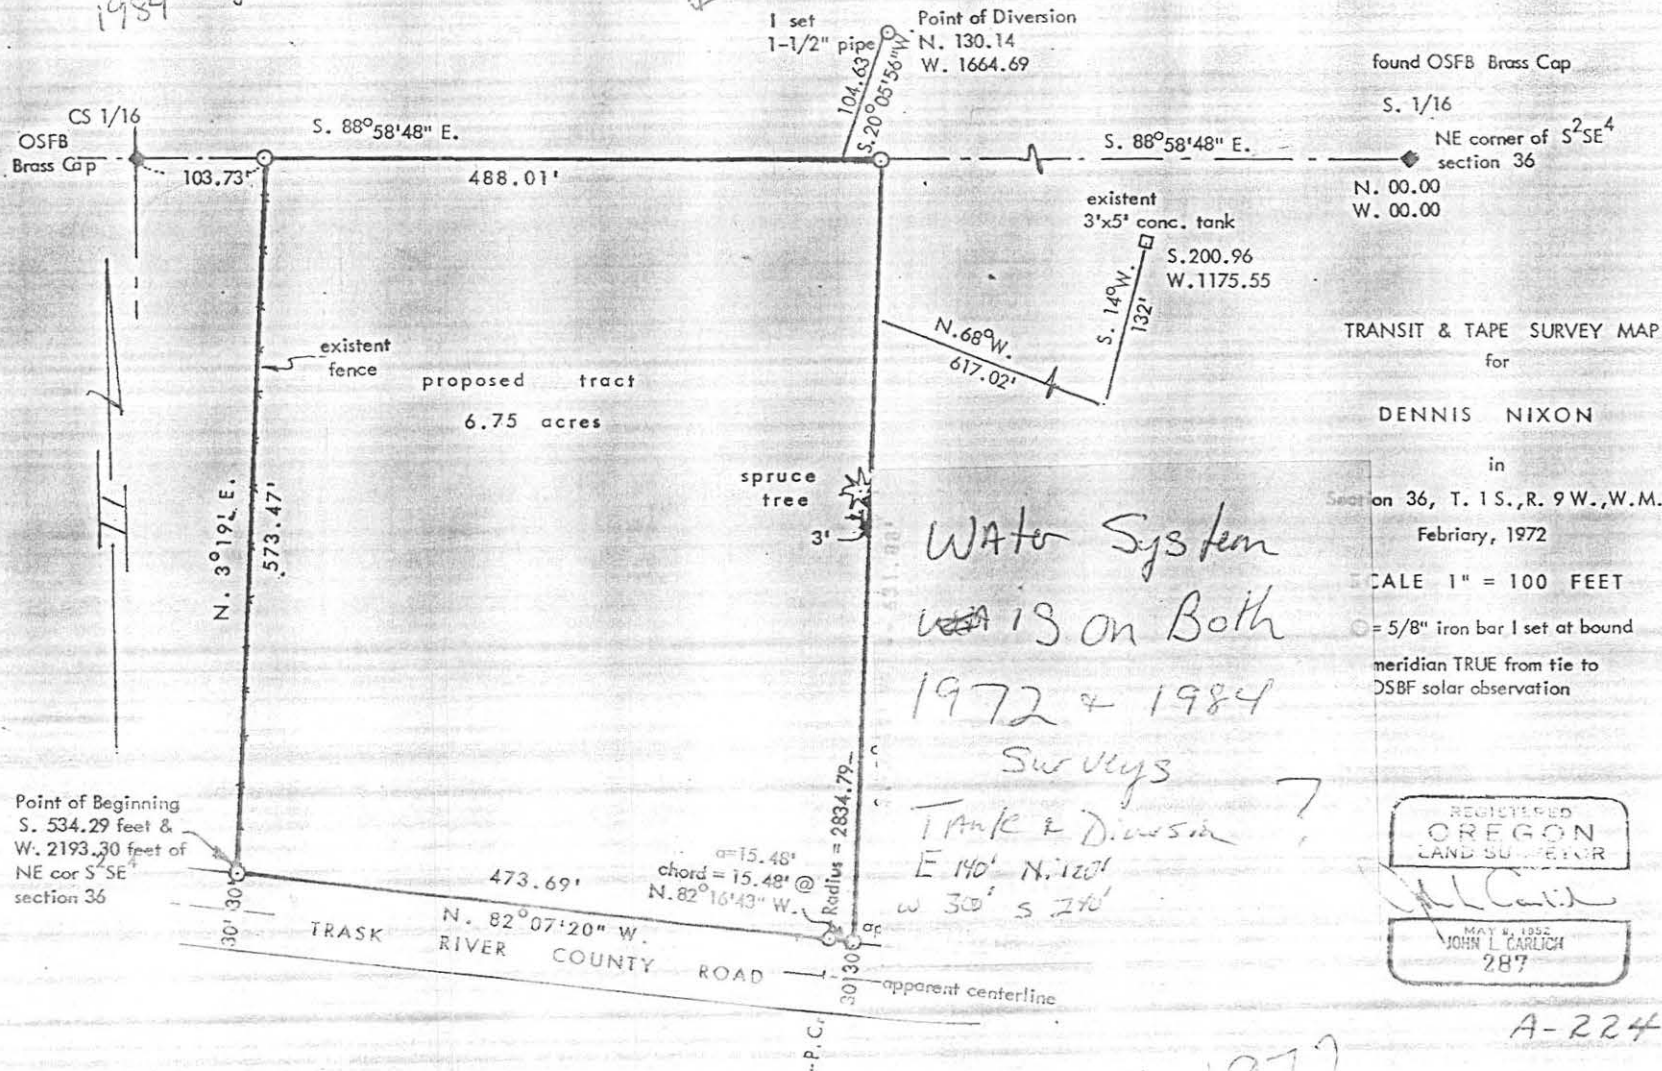 1984
1 set
1-1/2" pipe
Point of Diversion
N. 130.14
W. 1664.69
104.63'
S.20°05'56"W
found OSFB Brass Cap
S. 1/16
NE corner of S²SE⁴
section 36
N. 00.00
W. 00.00
CS 1/16
OSFB
Brass Cap
S. 88°58'48" E.
103.73'
488.01'
S. 88°58'48" E.
existent
3'x5' conc. tank
S.200.96
W.1175.55
S. 14°W.
132'
N.68°W.
617.02'
existent
fence
proposed tract
6.75 acres
N. 3°19' E.
573.47'
spruce
tree
3'
TRANSIT & TAPE SURVEY MAP
for
DENNIS NIXON
in
Section 36, T. 1 S., R. 9 W., W.M.
Febriary, 1972
SCALE 1" = 100 FEET
= 5/8" iron bar I set at bound
meridian TRUE from tie to
OSBF solar observation
WAter System
is on Both
1972 & 1984
Surveys
TAnk & Diversin ?
E 140' N. 120'
W 300' S 240'
Point of Beginning
S. 534.29 feet &
W. 2193.30 feet of
NE cor S²SE⁴
section 36
473.69'
a=15.48'
chord = 15.48' @
N.82°16'43" W.
Radius = 2834.79
N. 82°07'20" W.
30' 30'
TRASK RIVER COUNTY ROAD
30' 30'
apparent centerline
REGISTERED
OREGON
LAND SURVEYOR
John L Carlich
MAY 8, 1952
JOHN L CARLICH
287
A-224